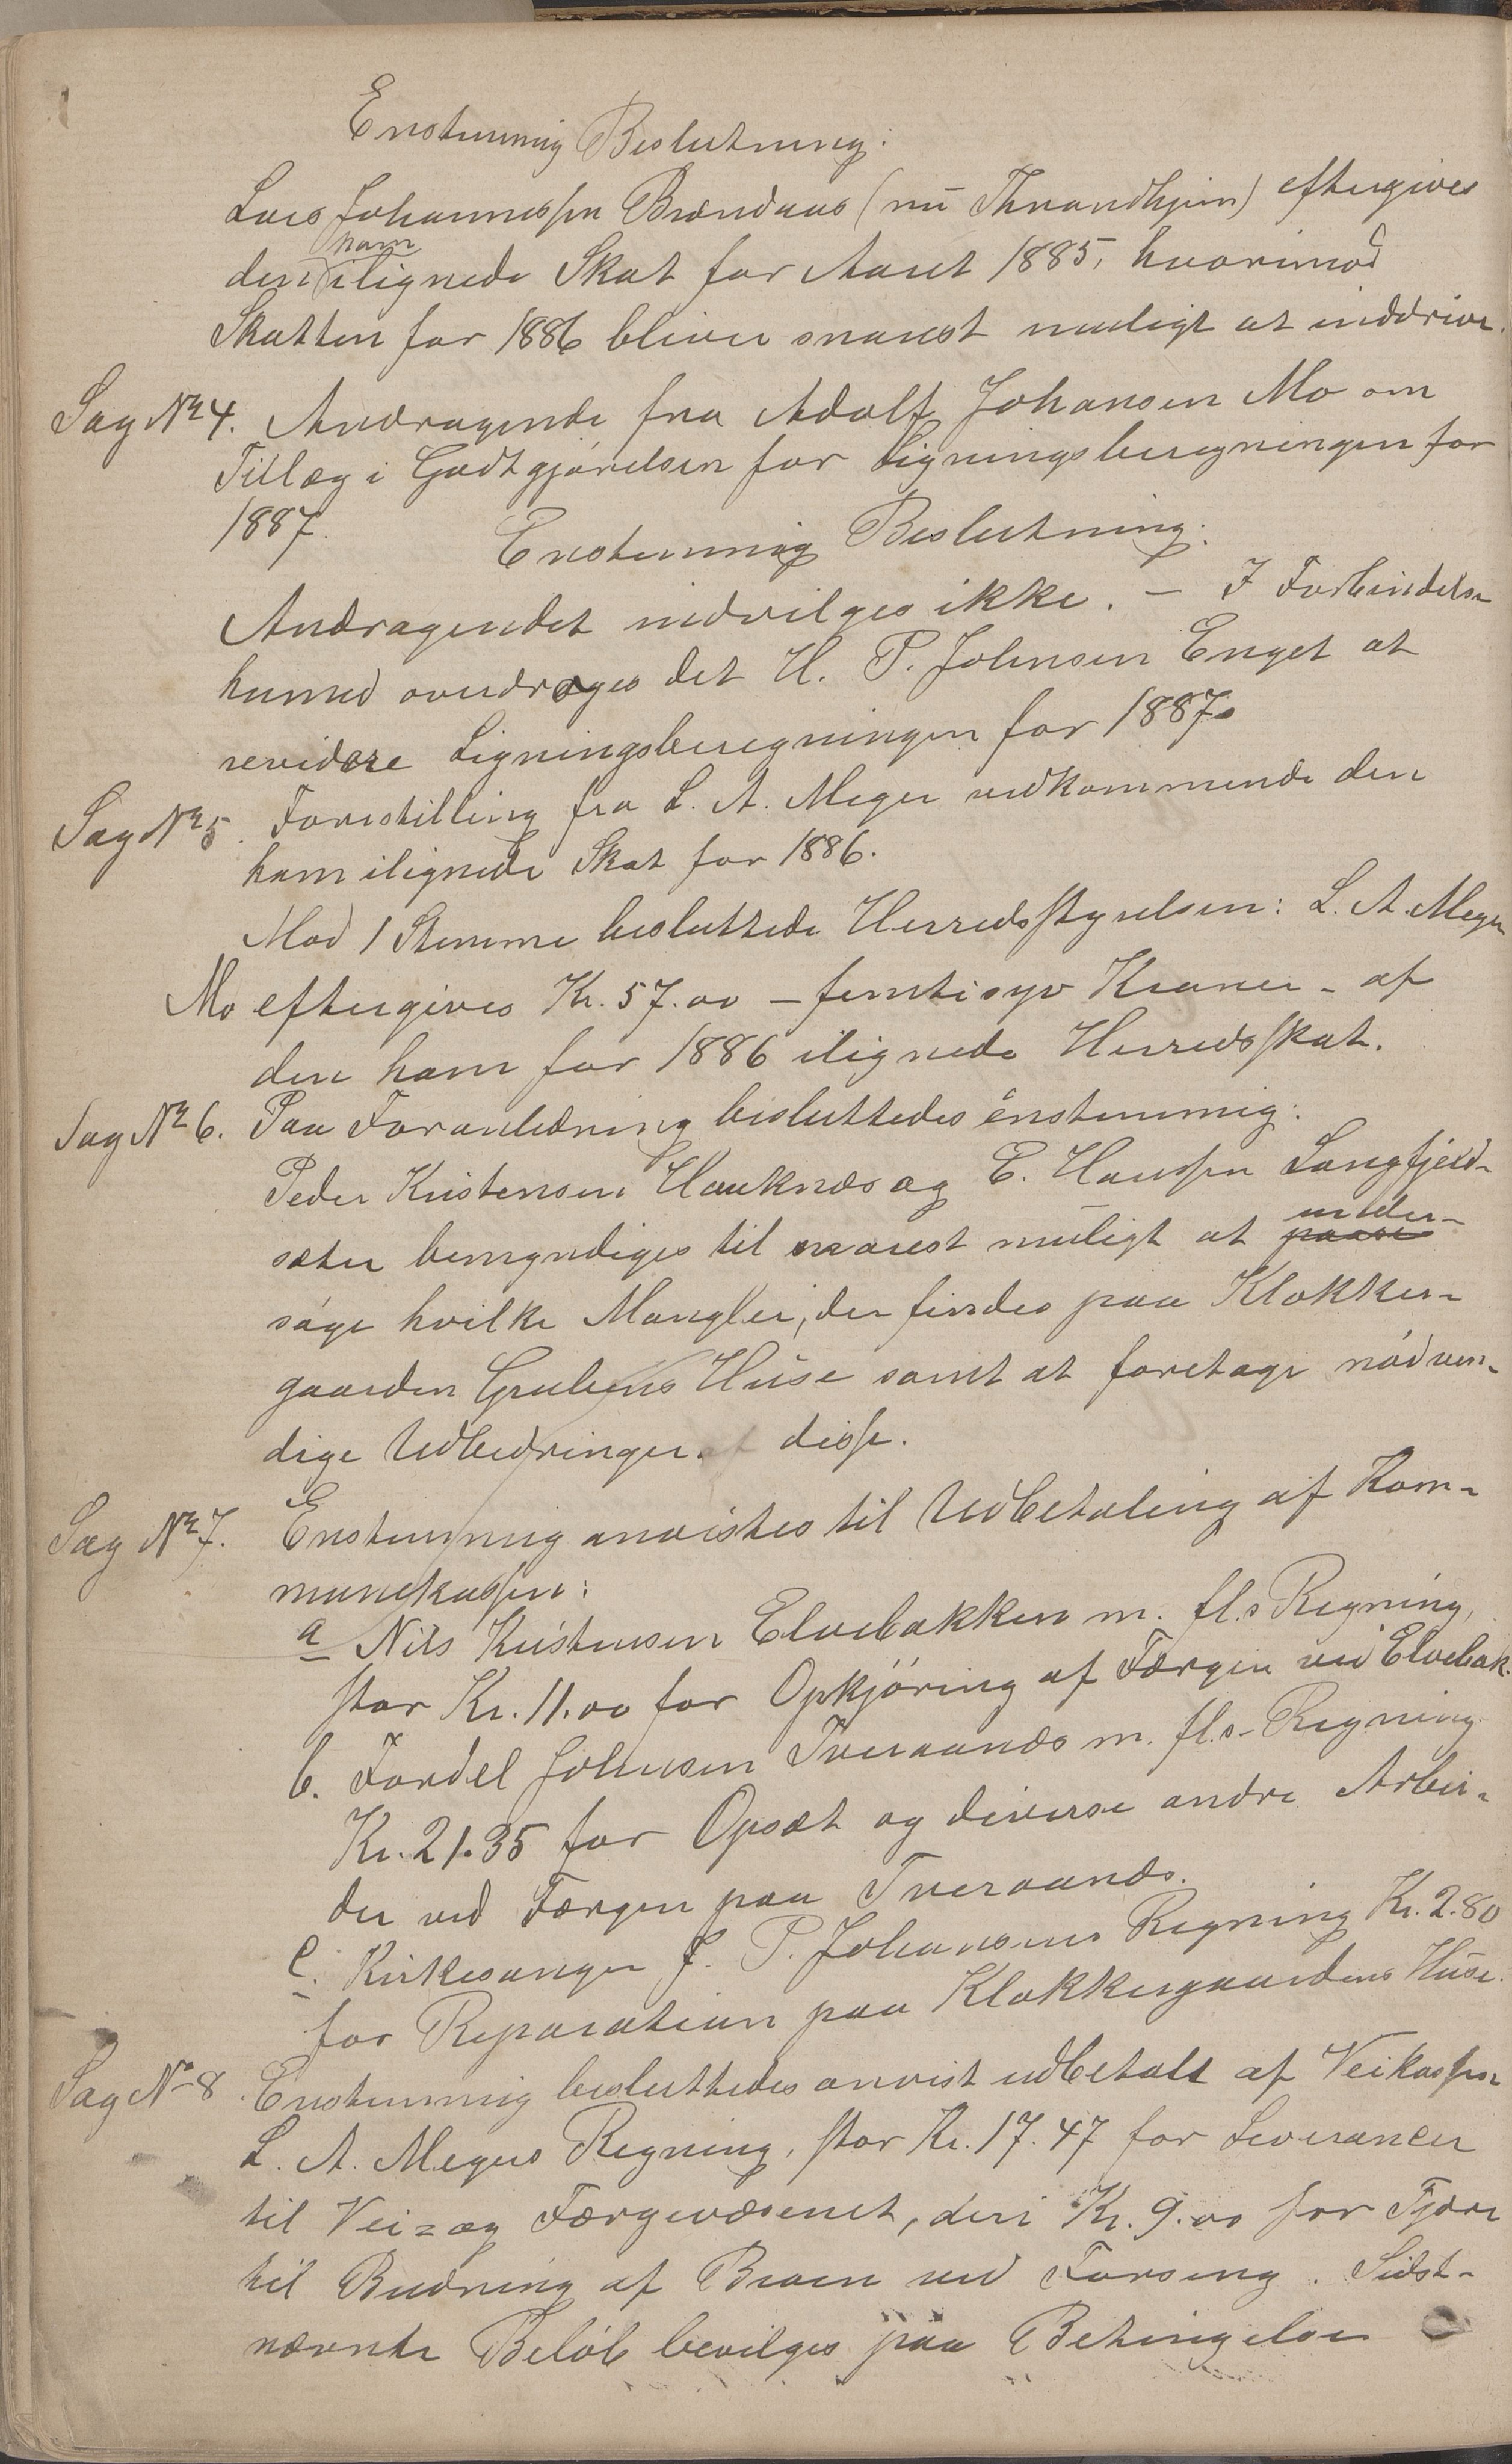 Enstemmig Beslutning:
Lars Johannessen Brændaas (nu Throndhjem) eftergives
den ham ilignede Skat for Aaret 1885, hvorimod
Skatten for 1886 bliver snarest muligt at inddrive.
Sag Nr 4. Andragende fra Adolf Johansen Mo om
Tillæg i Godtgjørelsen for Ligningsberegningen for
1887.
Enstemmig Beslutning:
Andragendet indvilges ikke. – I Forbindelse
hermed overdrages det H. P. Johnsen Enget at
revidere Ligningsberegningen for 1887.
Sag Nr 5. Forestilling fra L. A. Meyer vedkommende den
ham ilignede Skat for 1886.
Mod 1 Stemme besluttede Herredsstyrelsen: L. A. Meyer
Mo eftergives Kr. 57.00 – femtisyv Kroner – af
den ham for 1886 ilignede Herredsskat.
Sag Nr 6. Paa Foranledning besluttedes enstemmig:
Peder Kristensen Hauknæs og E. Hanssen Langfjeld-
sæter bemyndiges til snarest muligt at paase under-
søge hvilke Mangler, der findes paa Klokker-
gaarden Grubens Huse samt at foretage nødven-
dige Udbedringer af disse.
Sag Nr 7. Enstemmig anvistes til Udbetaling af Kom-
munekassen:
a Nils Kristensen Elvebakken m. fl.s Regning,
stor Kr. 11.00 for Opkjøring af Færgen ved Elvebak.
b. Fordel Johnsen Tveraanæs m. fl.s- Regning
Kr. 21.35 for Opsæt og diverse andre Arbei-
der ved Færgen paa Tveraanæs.
c. Kirkesanger J. P. Johansens Regning Kr. 2.80
for Reparation paa Klokkergaardens Huse.
Sag No 8. Enstemmig besluttedes anvist udbetalt af Veikassen
L. A. Meyers Regning, stor Kr. 17.47 for Leverancer
til Vei= og Færgevæsenet, deri Kr. 9.00 for Tjære
til Brædning af Broen ved Forseng. Sidst-
nævnte Beløb bevilges paa Betingelse